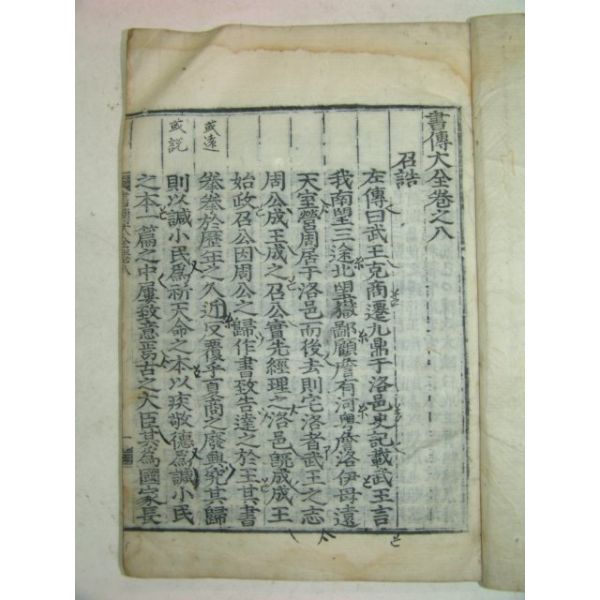 書傳大全卷之八
召誥
左傳曰武王克商遷九鼎于洛邑史記載武王言
我南望三途北望嶽鄙顧詹有河粤詹洛伊毋遠
天室營周居于洛邑而後去則宅洛者武王之志
周公成王成之召公實先經理之洛邑旣成成王
始政召公因周公之歸作書致告達之於王其書
拳拳於歷年之久近反覆乎夏商之廢興究其歸
則以諴小民爲祈天命之本以疾敬德爲諴小民
之本一篇之中屢致意焉古之大臣其爲國家長
或遠
或説